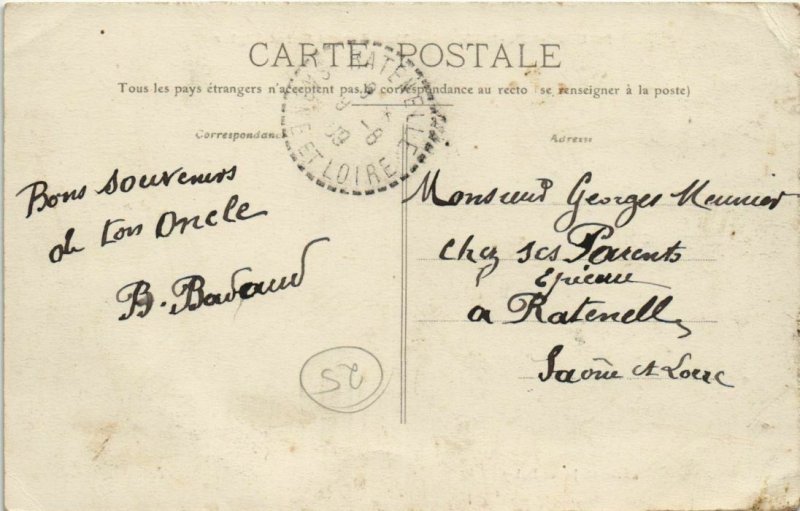 CARTE POSTALE
Tous les pays étrangers n'acceptent pas la correspondance au recto (se renseigner à la poste)
Correspondance
Adresse
RATENELLE
SAÔNE ET LOIRE
Bons souvenirs
de ton Oncle
B. Badaud
Monsieur Georges Meunier
chez ses Parents
Epicier
a Ratenelle
Saône et Loire
25